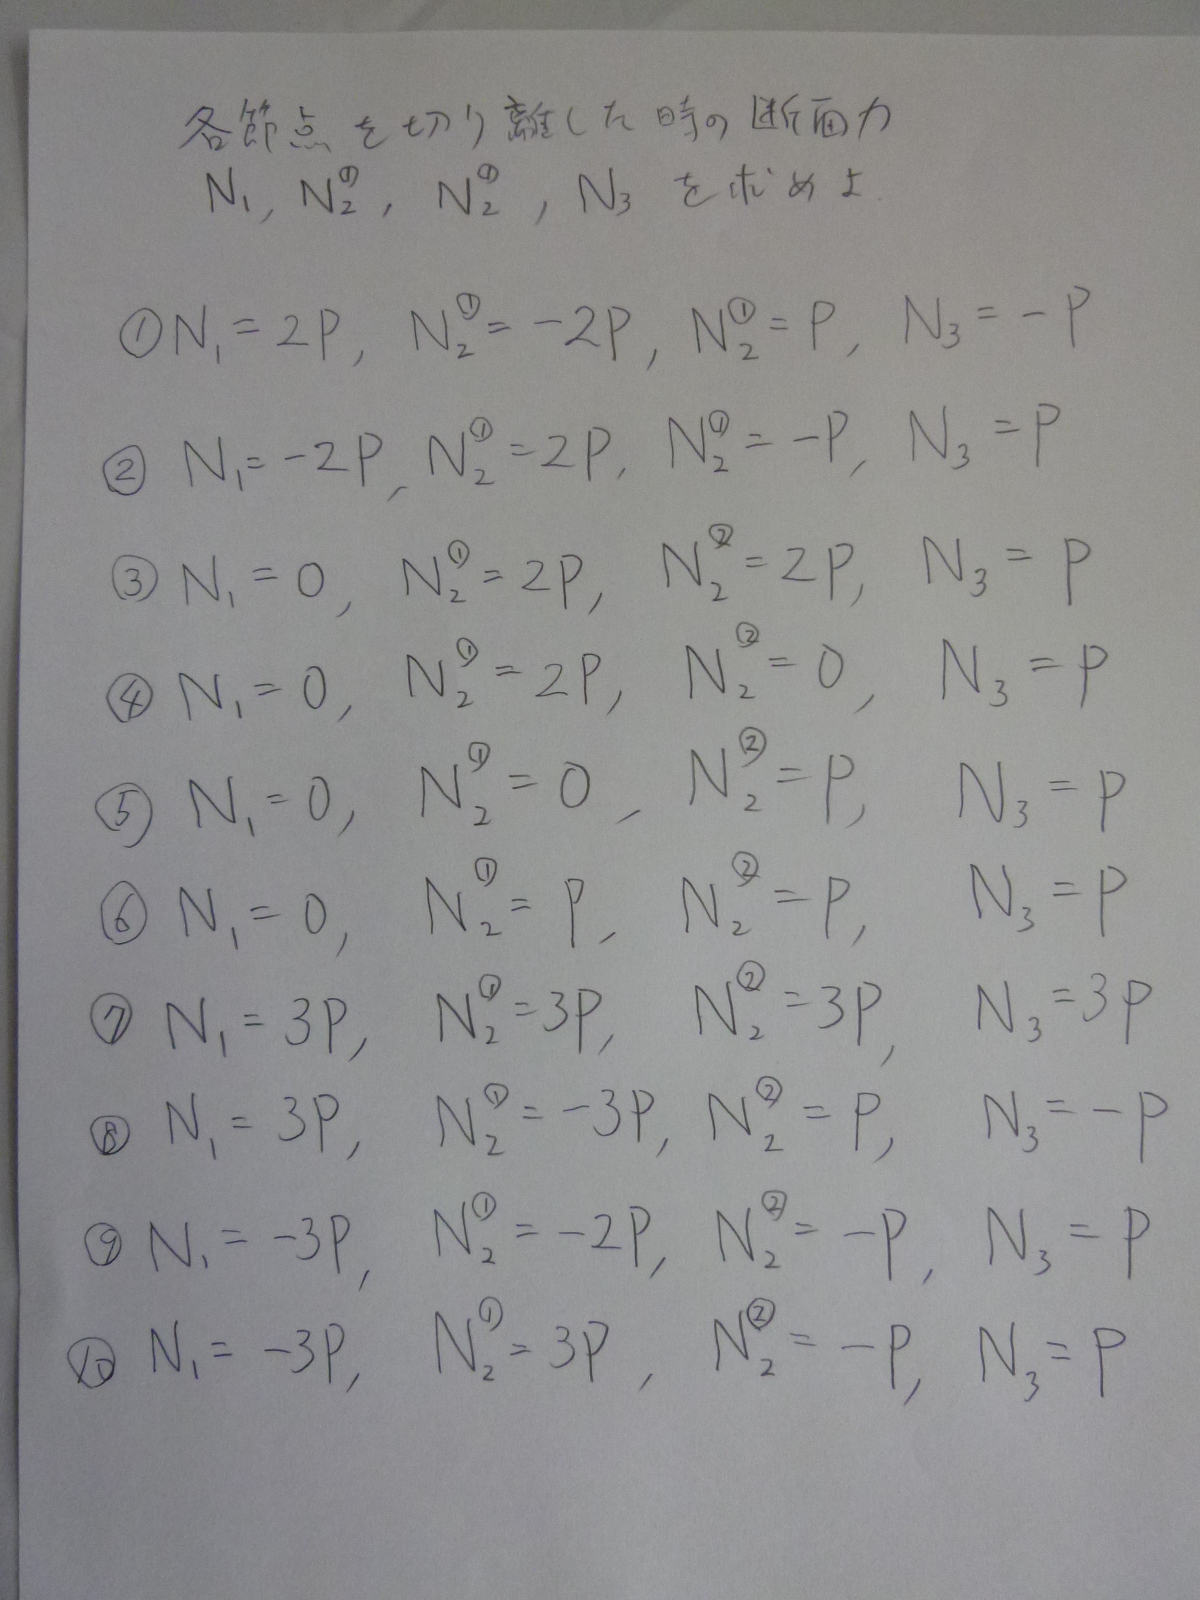 各節点を切り離した時の断面力
N₁, N₂^①, N₂^①, N₃ を求めよ.
① N₁ = 2P, N₂^① = -2P, N₂^① = P, N₃ = -P
② N₁ = -2P, N₂^① = 2P, N₂^① = -P, N₃ = P
③ N₁ = 0, N₂^① = 2P, N₂^② = 2P, N₃ = P
④ N₁ = 0, N₂^① = 2P, N₂^② = 0, N₃ = P
⑤ N₁ = 0, N₂^① = 0, N₂^② = P, N₃ = P
⑥ N₁ = 0, N₂^① = P, N₂^② = P, N₃ = P
⑦ N₁ = 3P, N₂^① = 3P, N₂^② = 3P, N₃ = 3P
⑧ N₁ = 3P, N₂^① = -3P, N₂^② = P, N₃ = -P
⑨ N₁ = -3P, N₂^① = -2P, N₂^② = -P, N₃ = P
⑩ N₁ = -3P, N₂^① = 3P, N₂^② = -P, N₃ = P